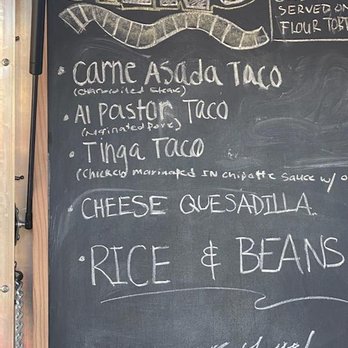 SERVED ON
FLOUR TORT
• Carne Asada Taco
(Charbroiled Steak)
• Al Pastor Taco
(Marinated Pork)
• Tinga Taco
(Chicken marinated IN chipotle sauce w/ o
• CHEESE QUESADILLA
• RICE & BEANS